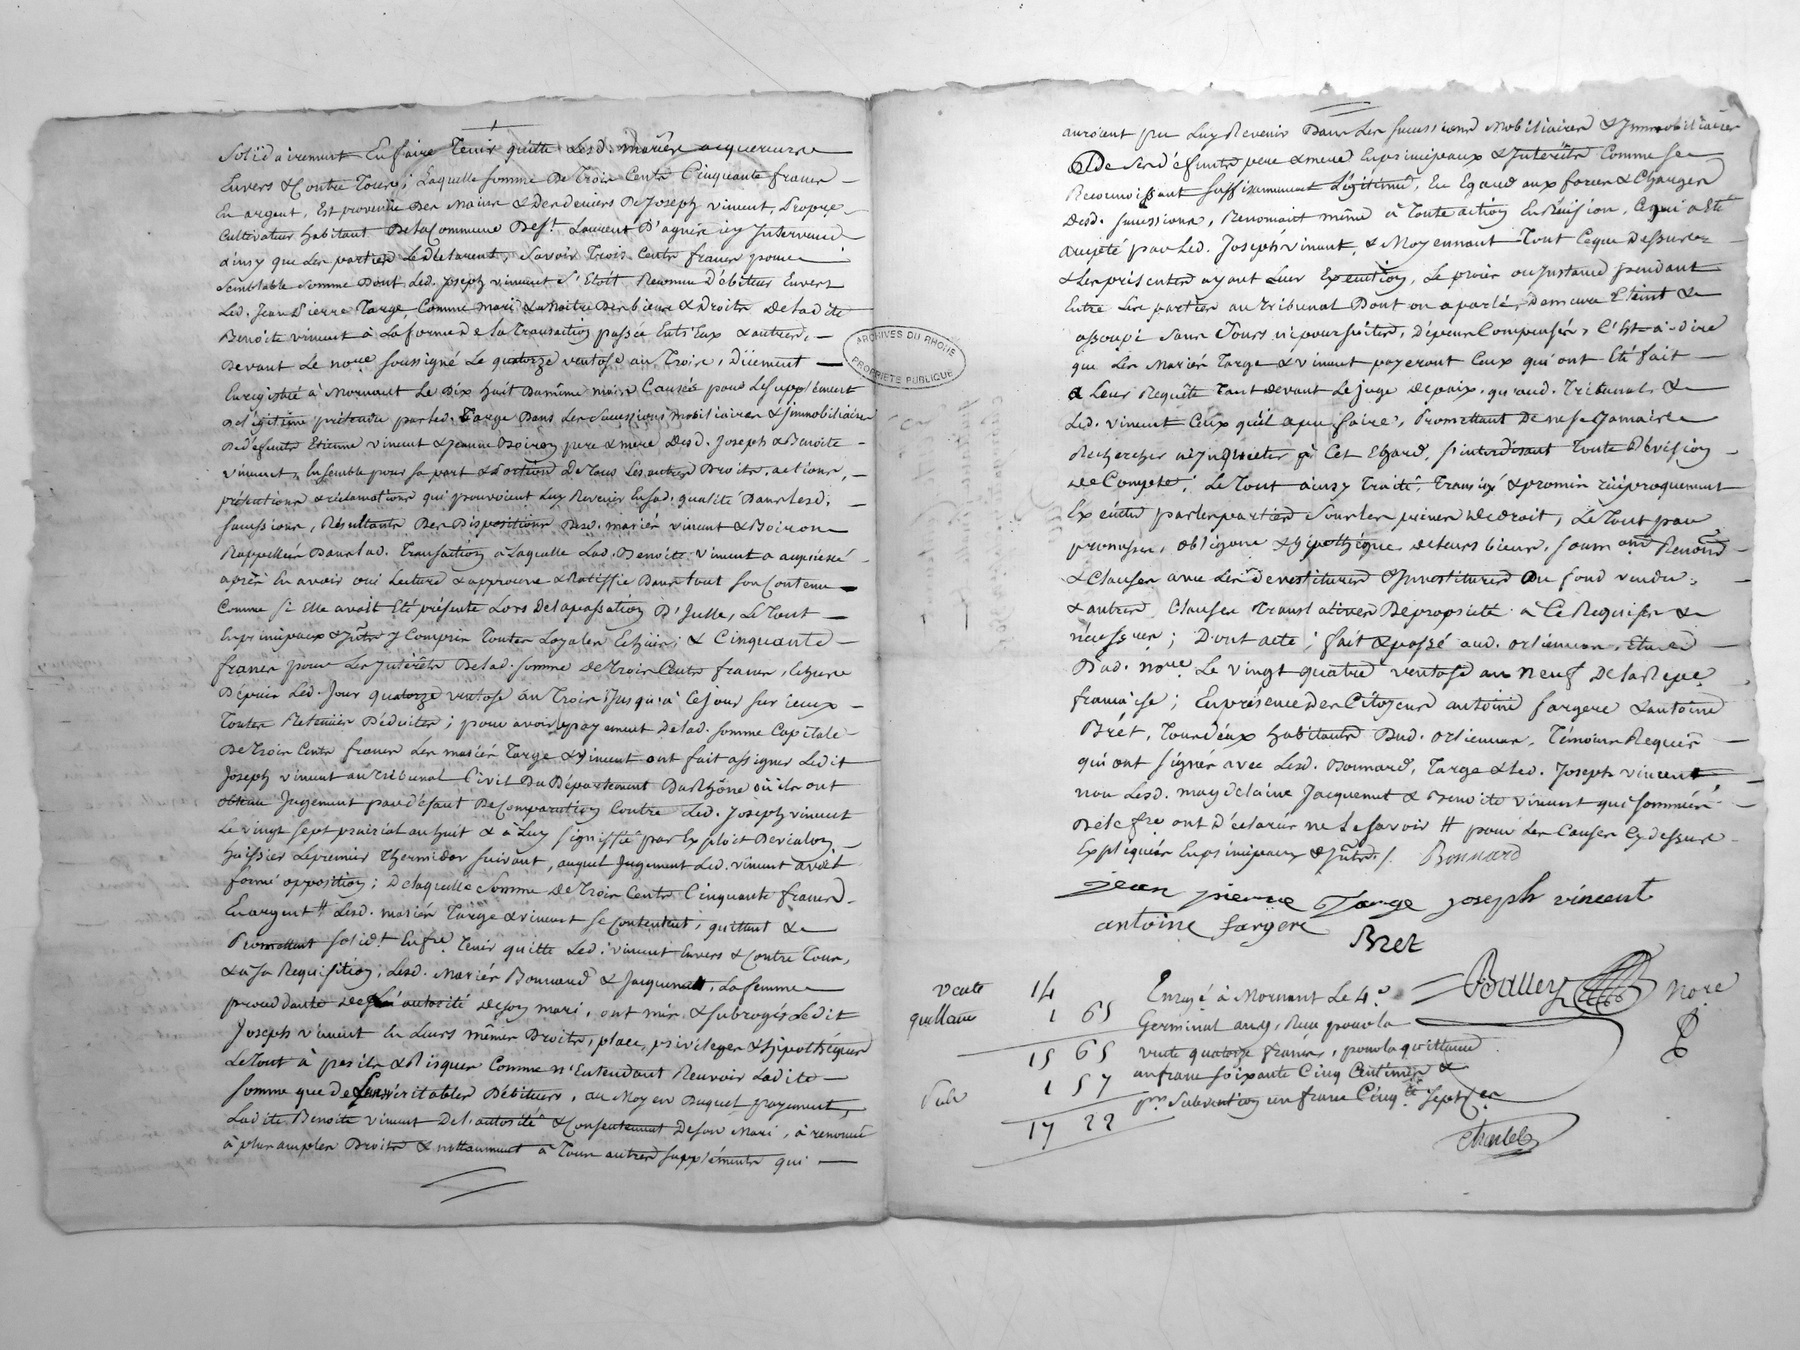 Solidairement En faire Tenir quitte Lesd. mariés acquereurs
Envers & Contre Tous; Laquelle somme De Trois Cents Cinquante francs
En argent, Est provenüe Des Mains & Des deniers De Joseph vincent, Proprre
Cultivateur habitant De la Commune De St. Laurent D'agnin icy Intervenu
ainsy que Les parties Le declarent, Savoir Trois Cents francs pour
Semblable Somme Dont Led. Joseph vincent S'Etoit Reconnu Débiteur Envers
Led. Jean Pierre Targe, Comme mari & maitre Des biens & Droits De ladite
Benoite vincent à La forme De la Transaction passée Entr'Eux & autres,
Devant Le nore soussigné Le quatorze ventose an Trois, Düement
Enrgistré à Mornant Le Dix huit Du même mois Causée pour Le supplément
De légitime prétendu par led. Targe Dans Les Successions mobiliaires & immobiliaires
De défunts Etienne vincent & Jeanne Boiron pere & mere Desd. Joseph & Benoite
vincent, Ensemble pour sa part & Portion De Tous Les autres Droits, actions,
prétentions & réclamations qui pouvoient Luy Revenir En sad. qualité Dans lesd.
Successions, Résultants Des Dispositions Desd. mariés vincent & Boiron
Rappellées Dans lad. Transaction à Laquelle Lad. Benoite vincent a acquiescé
après En avoir oui Lecture & approuve & Ratiffie Dans tout son Contenu
Comme Si Elle avoit Eté présente Lors De la passation D'Icelle, Le Tout
En principaux & Intts y Compris Toutes Loyales Echües; & Cinquante
francs pour Les Intérêts De lad. somme De Trois Cents francs, Echus
Dépuis Led. Jour quatorze ventose an Trois Jusqu'à Ce jour sur iceux
Toutes Retenües Déduites; pour avoir payement De lad. somme Capitale
De Trois Cents francs Les mariés Targe & vincent ont fait assigner Ledit
Joseph vincent au Tribunal Civil Du Département Du Rhône où ils ont
obtenu Jugement par défaut De Comparution Contre Led. Joseph vincent
Le vingt sept prairial an huit & à Luy signiffié par Exploit De vialon
huissier Le premier Thermidor suivant, auquel Jugement Led. vincent avoit
formé opposition; De laquelle Somme De Trois Cents Cinquante francs
En argent # Lesd. mariés Targe & vincent se Contentent, quittent &
Promettent solidt. En fre Tenir quitte Led. vincent Envers & Contre Tous,
& à sa Requisition, Lesd. Mariés Bonnard & Jacquemet, La femme
procedante De l'autorité De son mari, ont mis & subrogés Ledit
Joseph vincent En Leurs mêmes Droits, place, privileges & hipothéques
Le Tout à perils & Risques Comme n'Entendant Recevoir Ladite
Somme que De Leurs véritables Débiteurs, au Moyen Duquel payement,
Ladite Benoite vincent De l'autorité & Consentement De son Mari, à renoncé
à plus amples Droits & nottamment à Tous autres suppléments qui
auroient pu Luy Revenir Dans Les Successions Mobiliaires & Immobiliaires
De Ses défunts pere & mere En principaux & Intérêts Comme Se
Reconnoissant Suffisamment Légitimé, Eu Egard aux forces & Charges
Desd. Successions, Renonçant même à Toute action En Révision, Ce qui a Eté
accepté par Led. Joseph vincent, & Moyennant Tout Ce que Dessus &
& Les présentes ayant Leur Exécution, Le procès ou Instance pendant
Entre Les parties au Tribunal Dont on a parlé, Demeure Eteint &
assoupi Sans Tours ni poursuites, Dépens Compensés, C'Est-à-dire
que Les Mariés Targe & vincent payeront Ceux qui ont Eté fait
a Leur Requête Tant devant Le juge de paix, qu'aud. Tribunal, &
Led. vincent Ceux qu'il a pu faire, Promettant De ne se Jamais
Rechercher n'y Inquieter à Cet Egard, s'interdisant Toute Révision
de Compte; Le Tout ainsy Traité, Transigé & promis réciproquement
Exécuter par les parties sous les peines de droit, Le Tout par
promesse, obligons & hipothéque de leurs biens, soumons Renons
& Clauses avec Les devestitures & Investitures Du fond vendu,
& autres Clauses Translatives De propriété à Ce Requises &
nécessaires; Dont acte; fait & passé aud. orlienas, Etude
Dud. nore Le vingt quatre ventose an neuf De la Repue
française; En présence Des Citoyens antoine fargere & antoine
Brét, Tous deux habitants Dud. orlienas, Témoins Requis
qui ont signés avec Lesd. Bonnard, Targe & Led. Joseph vincent
non Lesd. magdelaine Jacquemet & Benoite vincent qui sommées
De le fre ont Déclarés ne Le savoir # pour Les Causes Cy dessus
Expliquées En principaux & Intts ./. Bonnard
jean pierre Targe joseph vincent
antoine fargere Bret
Balley nore
vente 14
quittance 1 65
15 65
Sub 1 57
17 22
Enrgé à Mornant Le 4e
Germinal an 9, Reçu pour la
vente quatorze francs, pour la quittance
un franc soixante Cinq Centimes &
pr Subvention un franc Cinqte Sept Ces
ARCHIVES DU RHONE
PROPRIETE PUBLIQUE